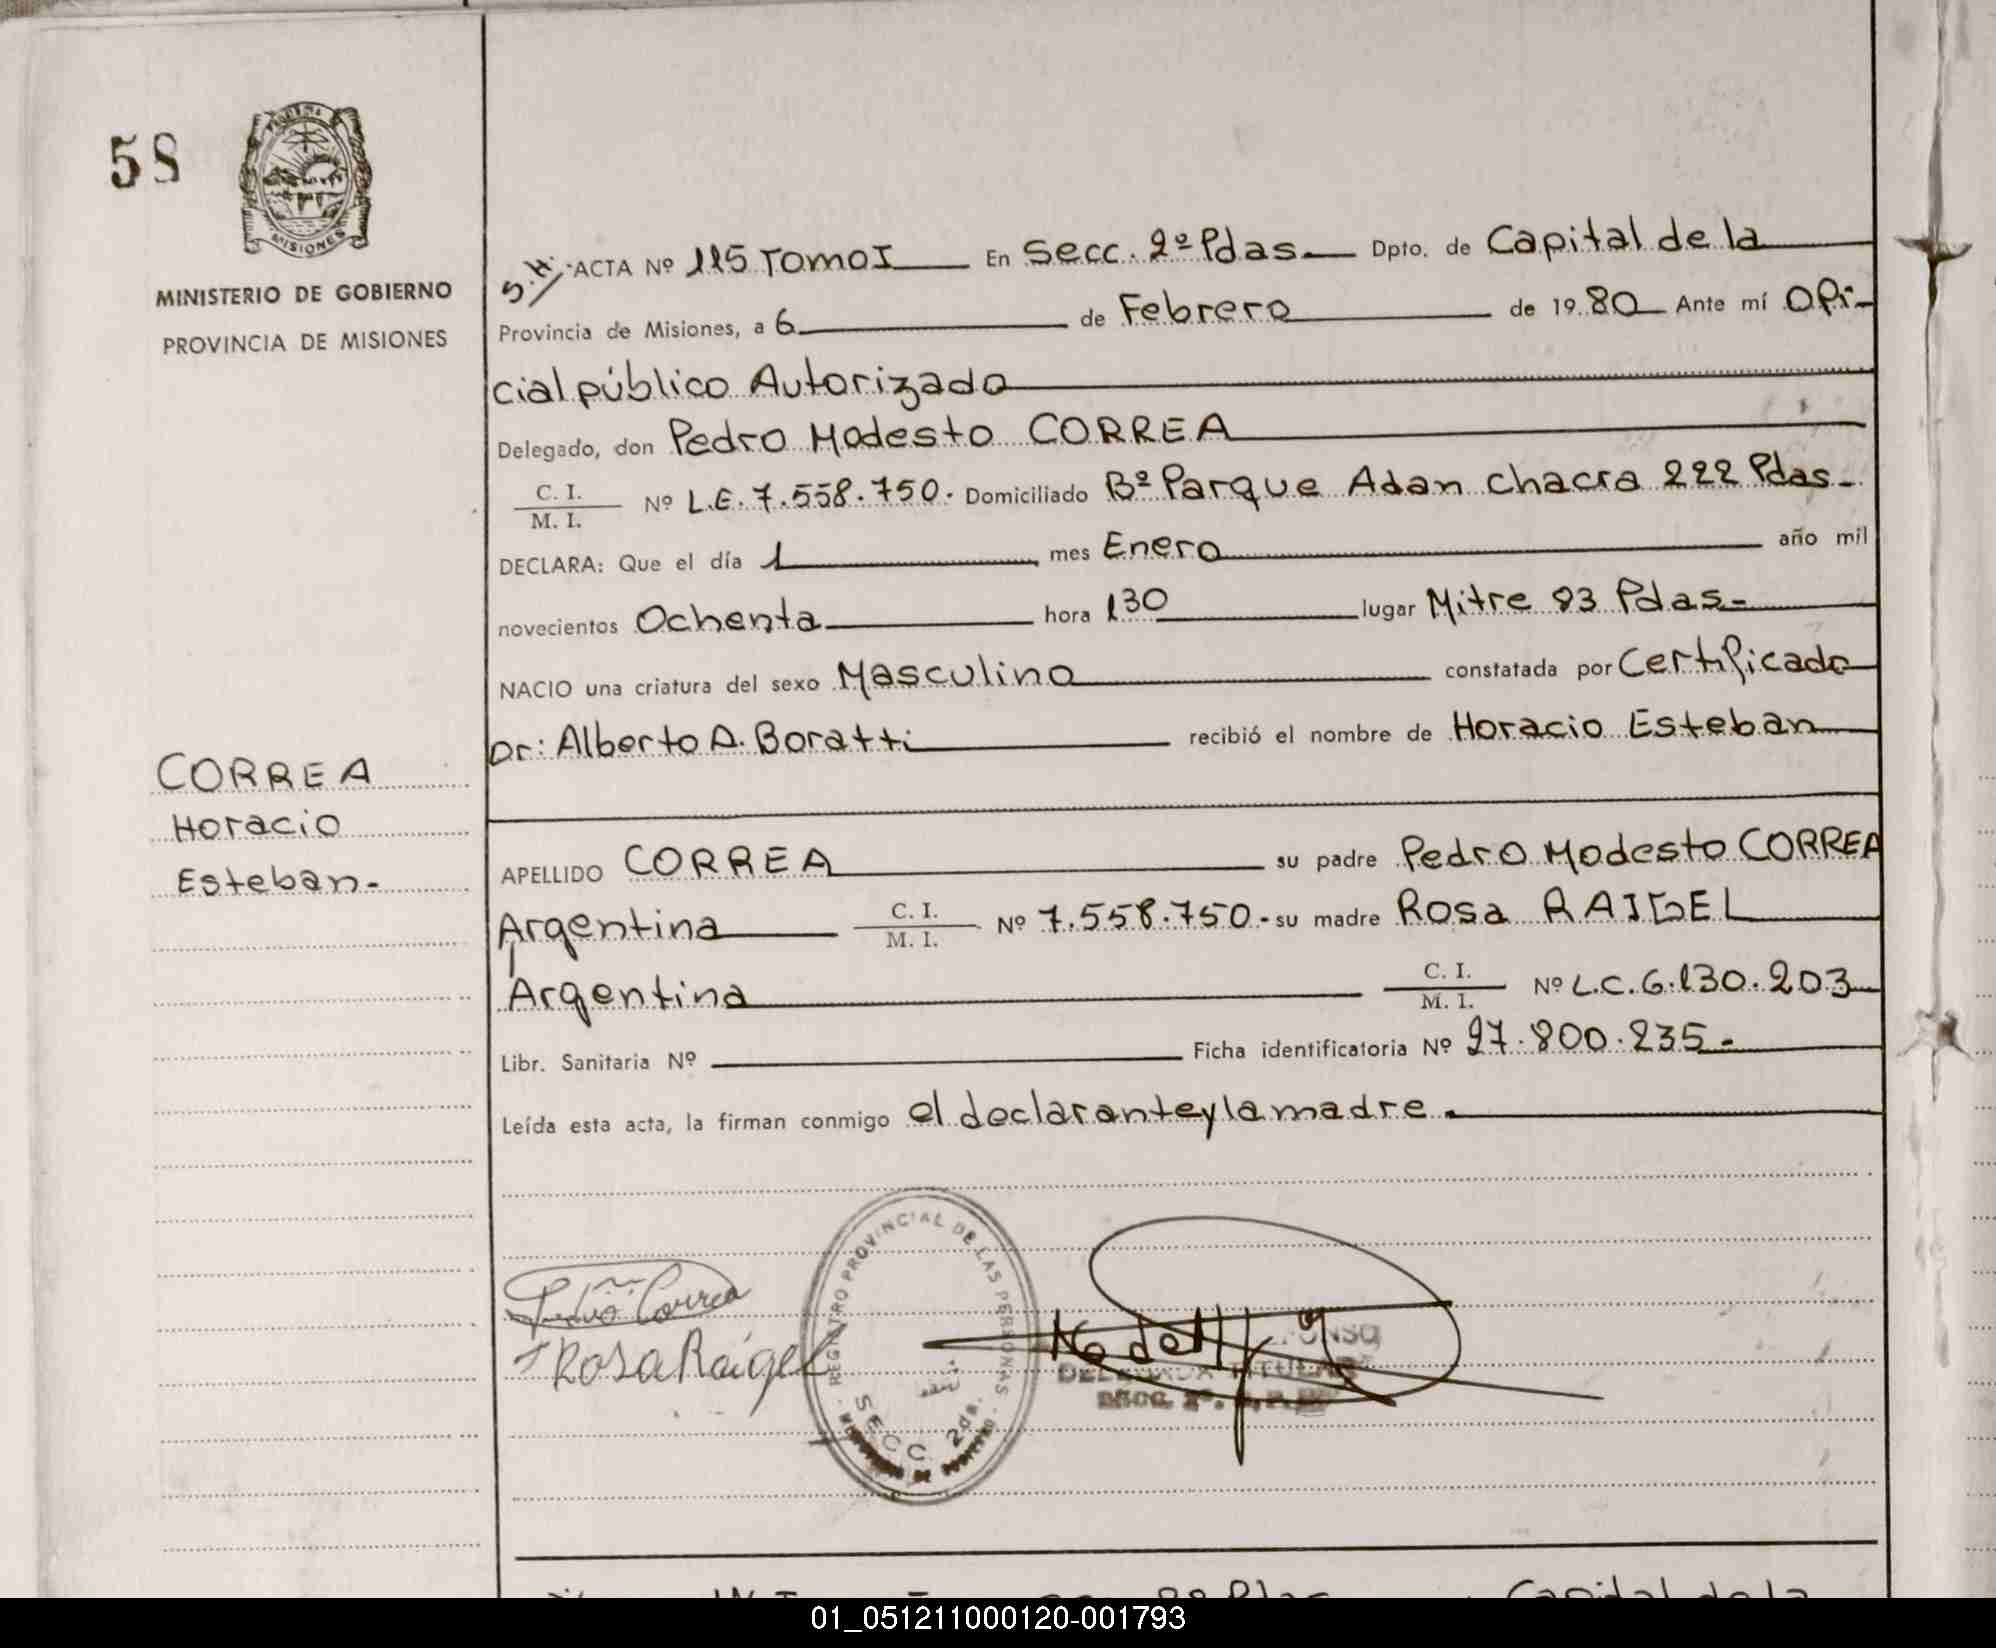 58
MISIONES
MINISTERIO DE GOBIERNO
PROVINCIA DE MISIONES
S.H/. ACTA Nº 115 Tomo I En Secc. 2º Pdas. Dpto. de Capital de la
Provincia de Misiones, a 6 de Febrero de 1980 Ante mí Ofi-
cial público Autorizado
Delegado, don Pedro Modesto CORREA
C. I.
M. I.
Nº L.E. 7.558.750. Domiciliado Bº Parque Adan Chacra 222 Pdas.
DECLARA: Que el día 1 mes Enero año mil
novecientos Ochenta hora 1 30 lugar Mitre 83 Pdas.
NACIO una criatura del sexo Masculino constatada por Certificado
Dr: Alberto A. Boratti recibió el nombre de Horacio Esteban
CORREA
Horacio
Esteban.
APELLIDO CORREA su padre Pedro Modesto CORREA
Argentina C. I. M. I. Nº 7.558.750. su madre Rosa RAIGEL
Argentina C. I. M. I. Nº L.C. 6.130.203
Libr. Sanitaria Nº Ficha identificatoria Nº 27.800.235.
Leída esta acta, la firman conmigo el declarante y la madre.
Correa
Rosa Raigel
REGISTRO PROVINCIAL DE LAS PERSONAS
SECC. 2da.
TITULAR
Capital de la
01_051211000120-001793